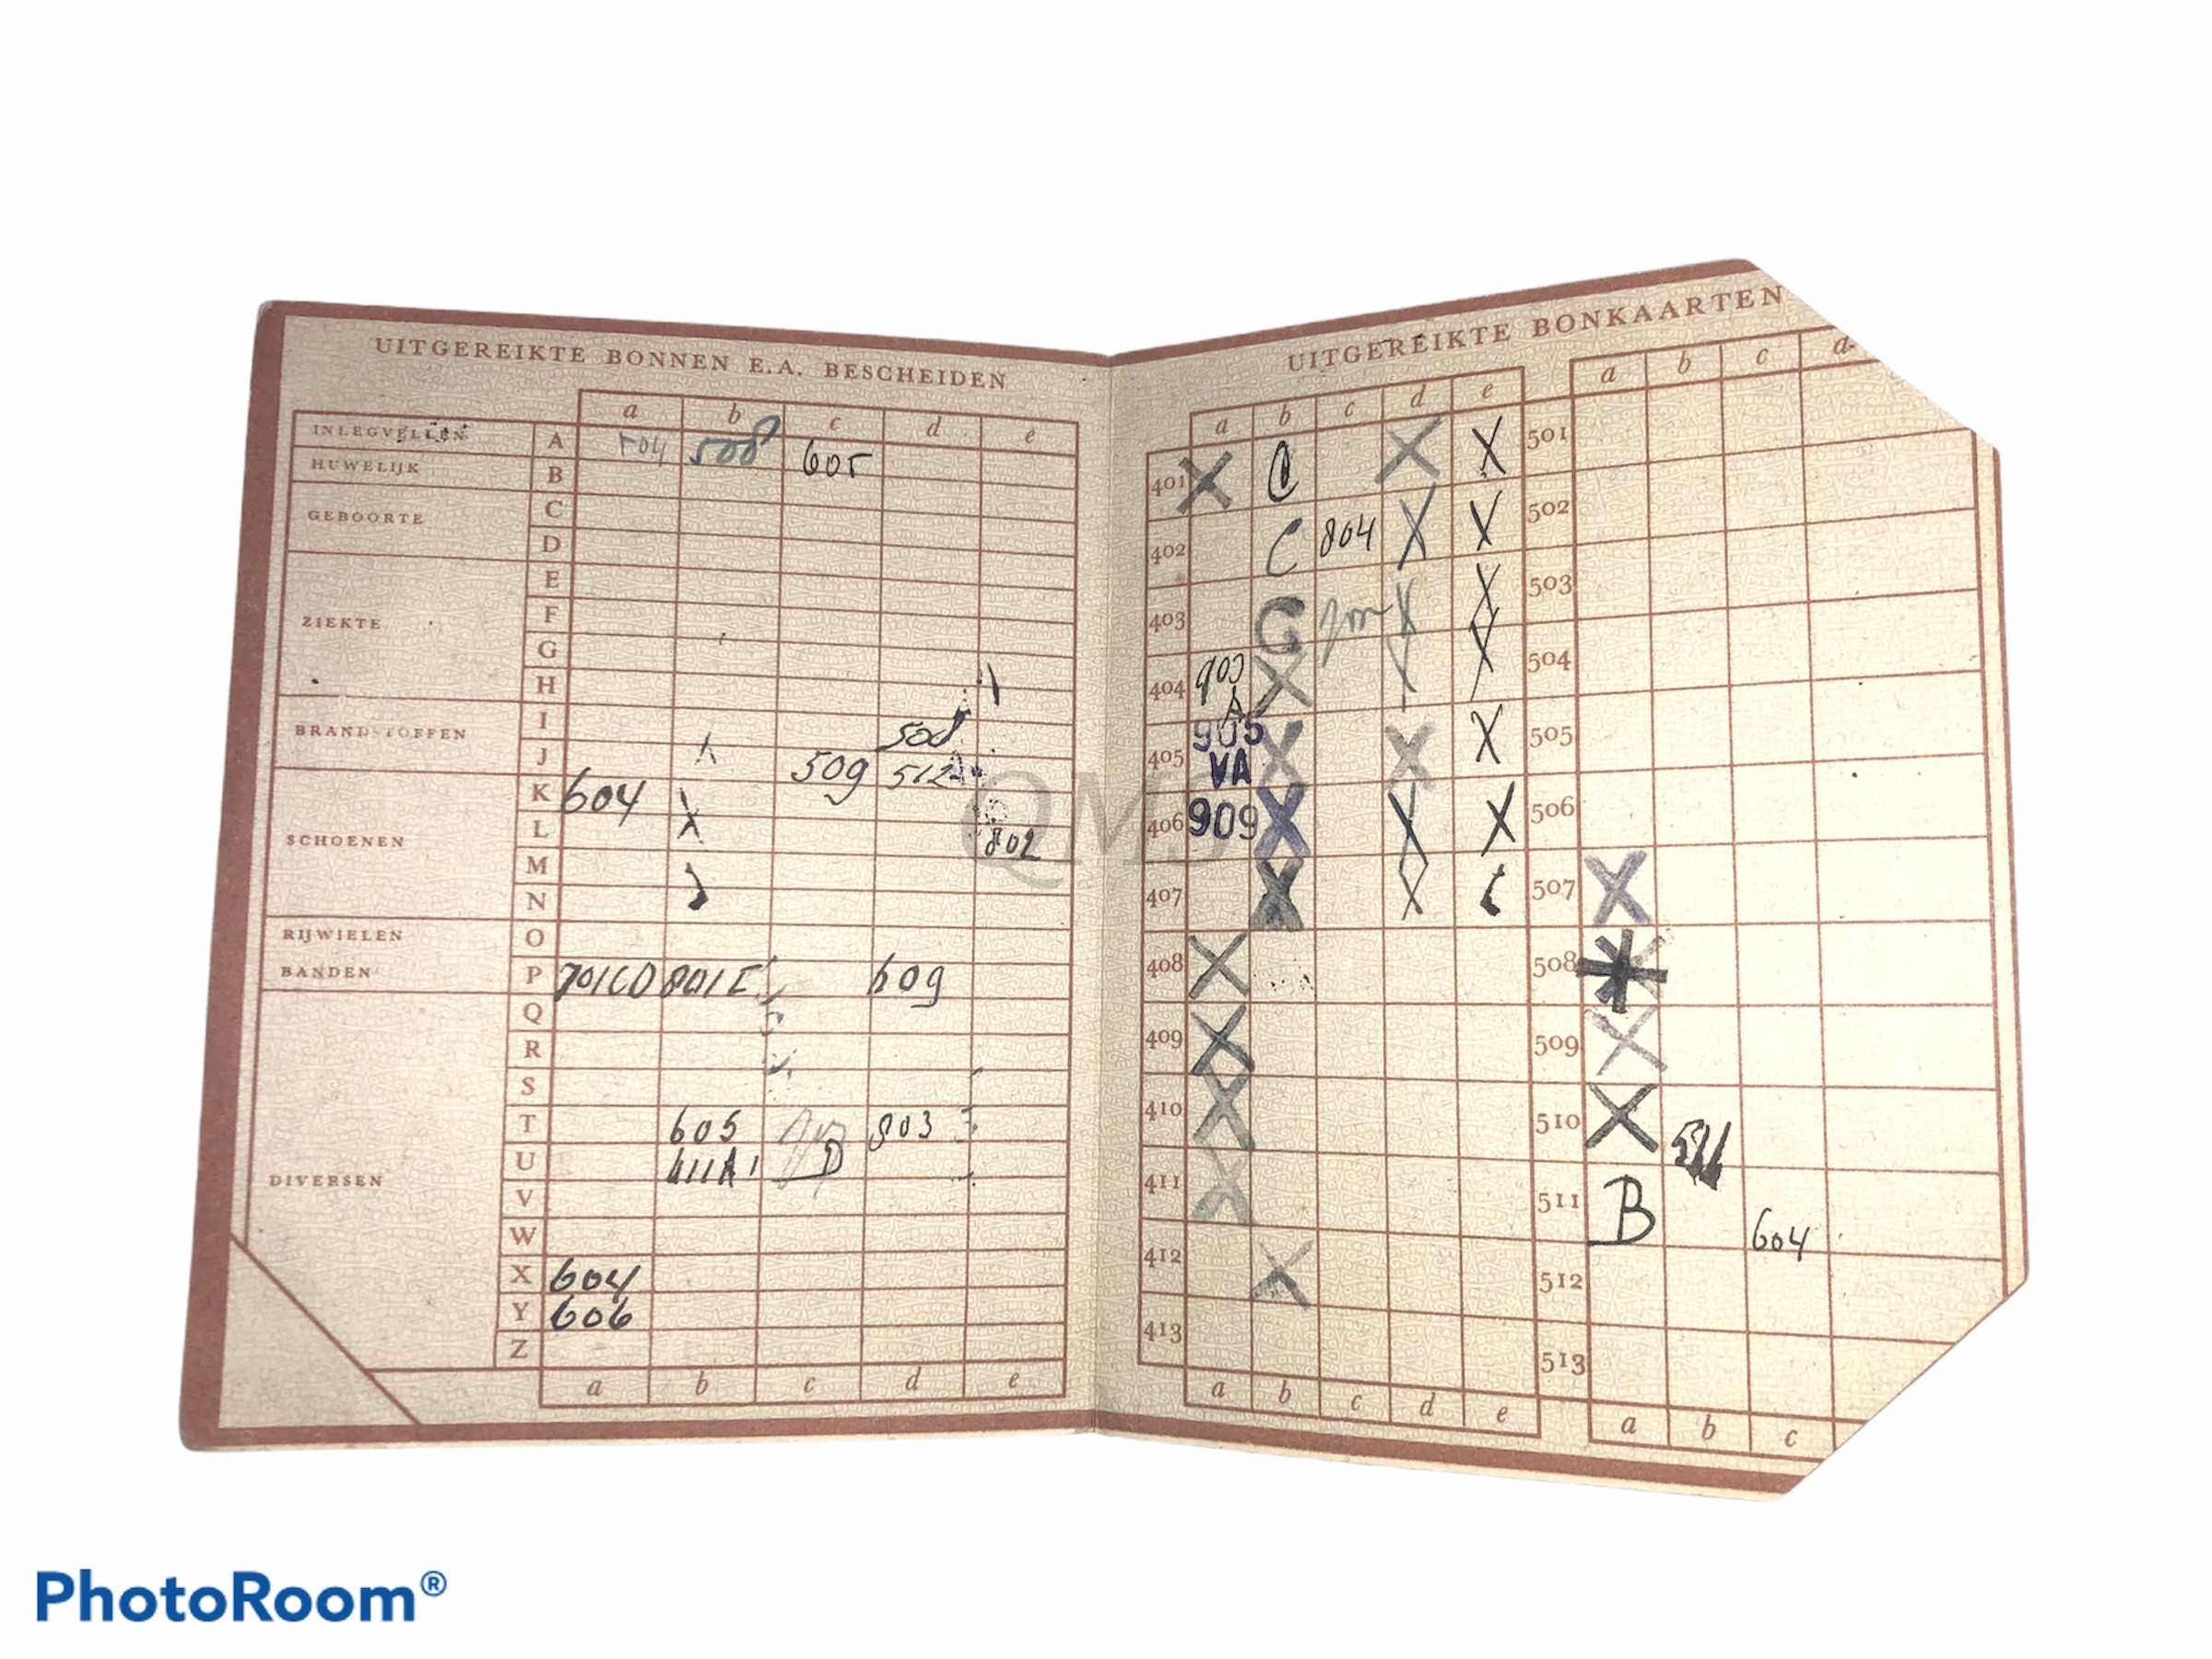 UITGEREIKTE BONNEN E.A. BESCHEIDEN
a b c d e
INLEGVELLEN A 504 508 605
HUWELIJK B
C
GEBOORTE
D
E
F
ZIEKTE
G
H
I 508
BRANDSTOFFEN
J 509 512
K 604 X
L 802
SCHOENEN
M
N
RIJWIELEN O
BANDEN P 701CD 801E 609
Q
R
S
T 605 803
U 611A1 D
DIVERSEN
V
W
X 604
Y 606
Z
a b c d e
QMS
UITGEREIKTE BONKAARTEN
a b c d e
401 X C X X
402 C 804 X X
403 C X X
404 903 A X X
405 905 VA X X X
406 909 X X X
407 X X
408 X
409 X
410 X
411 X
412 X
413
a b c d e
a b c d
501
502
503
504
505
506
507 X
508
509 X
510 X
511 B 604
512
513
a b c
PhotoRoom®